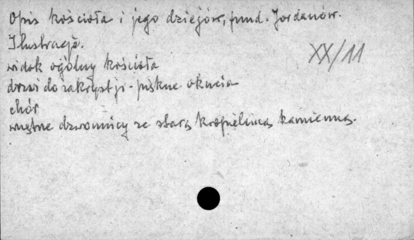 Opis kościoła i jego dziejów, fund. Jordanów.
Ilustracje.
XX/11
widok ogólny kościoła
drzwi do zakrystji - piękne okucia
chór
wnętrze dzwonnicy ze starą kropielnicą kamienną.